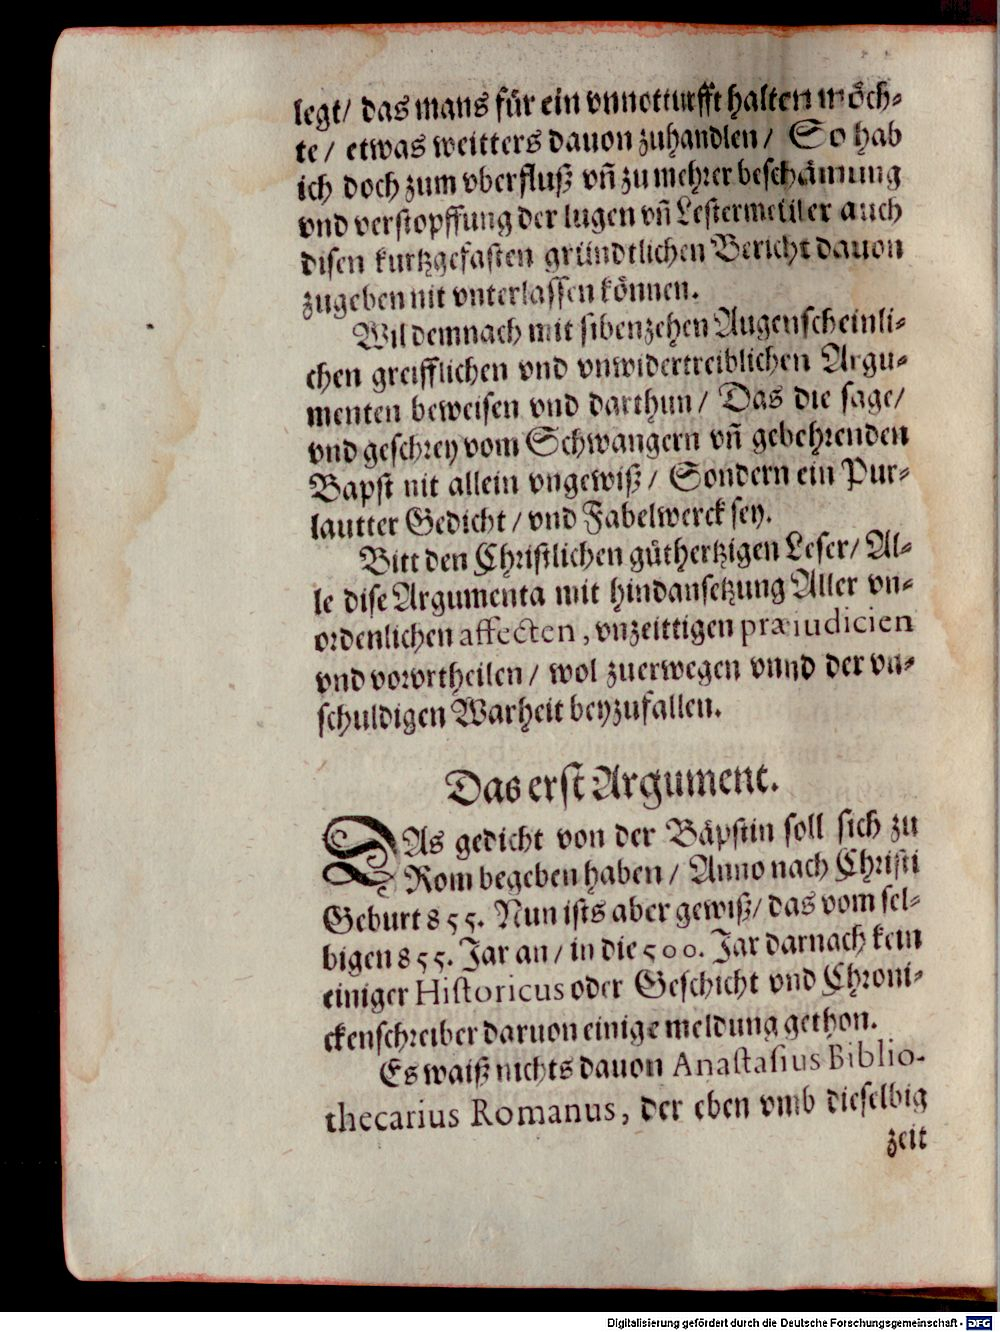 legt/ das mans für ein vnnotturfft halten möch-
te/ etwas weitters dauon zuhandlen/ So hab
ich doch zum vberfluß vñ zu mehrer beschämung
vnd verstopffung der lugen vñ Lestermeüler auch
disen kurtzgefasten gründtlichen Bericht dauon
zugeben nit vnterlassen können.
Wil demnach mit sibenzehen Augenscheinli-
chen greifflichen vnd vnwidertreiblichen Argu-
menten beweisen vnd darthun/ Das die sage/
vnd geschrey vom Schwangern vñ gebehrenden
Bapst nit allein vngewiß/ Sondern ein Pur-
lautter Gedicht/ vnd Fabelwerck sey.
Bitt den Christlichen güthertzigen Leser/ Al-
le dise Argumenta mit hindansetzung Aller vn-
ordenlichen affecten, vnzeittigen præiudicien
vnd vorvrtheilen/ wol zuerwegen vnnd der vn-
schuldigen Warheit beyzufallen.
Das erst Argument.
DAs gedicht von der Bäpstin soll sich zu
Rom begeben haben/ Anno nach Christi
Geburt 855. Nun ists aber gewiß/ das vom sel-
bigen 855. Jar an/ in die 500. Jar darnach kein
einiger Historicus oder Geschicht vnd Chroni-
ckenschreiber daruon einige meldung gethon.
Es waiß nichts dauon Anastasius Biblio-
thecarius Romanus, der eben vmb dieselbig
zeit
Digitalisierung gefördert durch die Deutsche Forschungsgemeinschaft - DFG